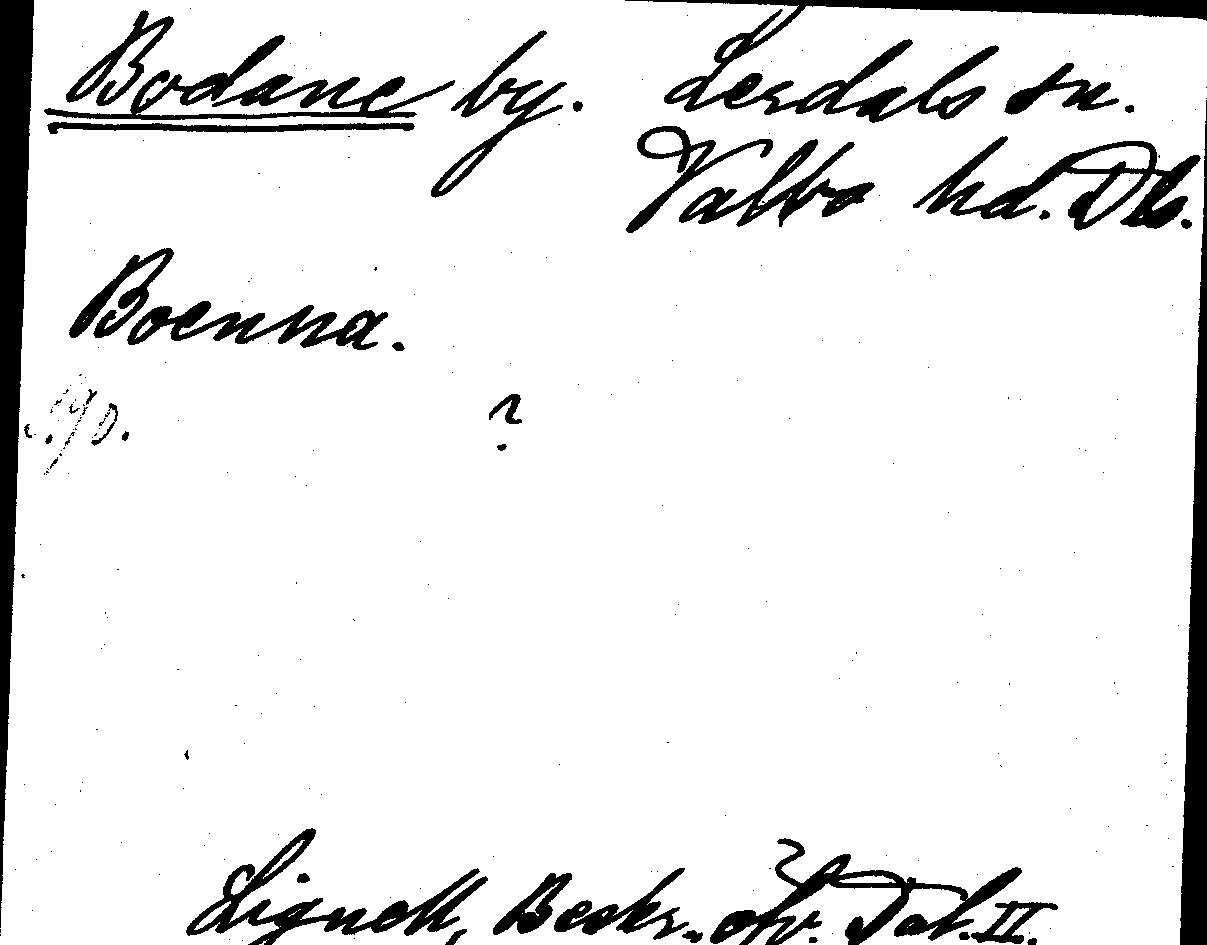 Bodane by. Lerdals sn.
Valbo hd. Dls.
Boenna.
s. 90. ?
Lignell, Beskr. öfv. Dal. II.